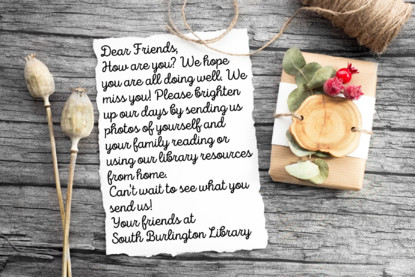 Dear Friends,
How are you? We hope
you are all doing well. We
miss you! Please brighten
up our days by sending us
photos of yourself and
your family reading or
using our library resources
from home.
Can't wait to see what you
send us!
Your friends at
South Burlington Library